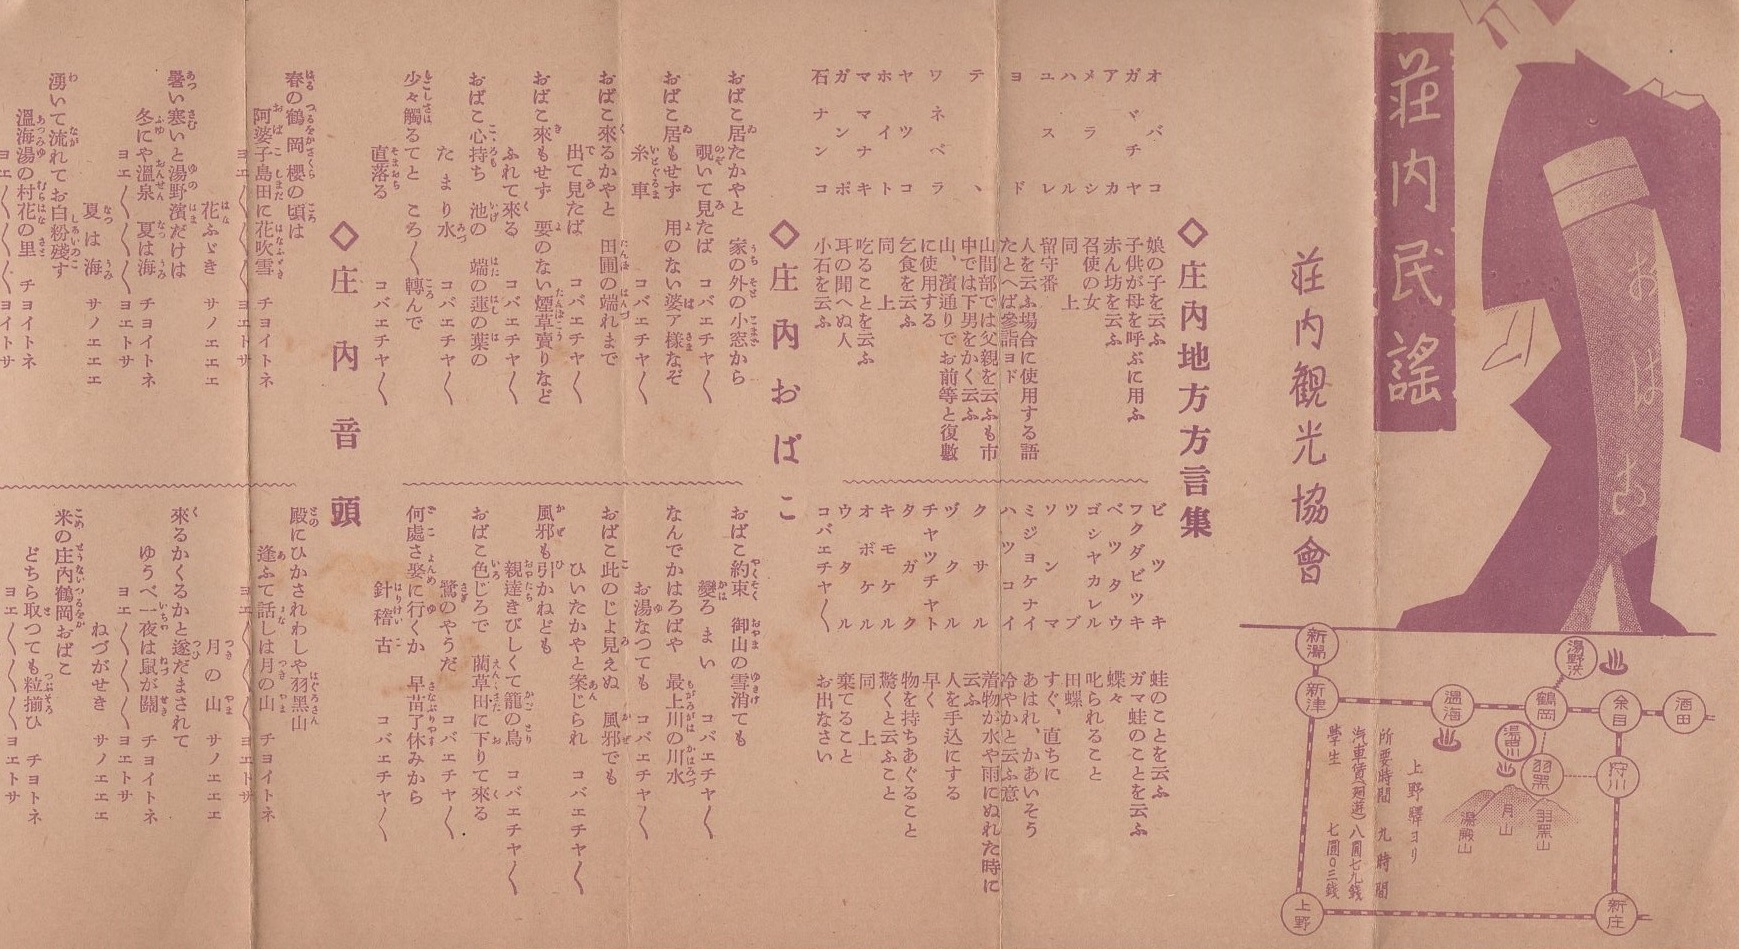 荘内民謡
おばこ
荘内観光協會
新潟
新津
温海
鶴岡
湯野浜
余目
酒田
湯田川
羽黒
狩川
湯殿山
月山
羽黒山
上野
新庄
上野驛ヨリ
所要時間 九時間
汽車賃(廻遊)八圓七九銭
學生 七圓〇三銭
◇庄内地方方言集
オバコ 娘の子を云ふ
ガヾチヤ 子供が母を呼ぶに用ふ
アカ 赤ん坊を云ふ
メラシ 召使の女
ハル 同上
ユスレ 留守番
ヨド 人を云ふ場合に使用する語
たとへば參詣ヨド
テヽ 山間部では父親を云ふも市
中では下男をかく云ふ
ワネベラ 山、濱通りでお前等と復數
に使用する
ヤツコ 乞食を云ふ
ホイト 同上
マママキ 吃ることを云ふ
ガンナボ 耳の聞へぬ人
石ナンコ 小石を云ふ
ビツキ 蛙のことを云ふ
フクダビツキ ガマ蛙のことを云ふ
ベツタウ 蝶々
ゴシヤカレル 叱られること
ツブ 田螺
ソンマ すぐ、直ちに
ミジョケナイ あはれ、かあいそう
ハツコイ 冷やかと云ふ意
クサル 着物が水や雨にぬれた時に
云ふ
ヅクル 人を手込にする
チヤツチヤト 早く
タガク 物を持ちあぐること
キモケル 驚くと云ふこと
オボケル 同上
ウタル 棄てること
コバエチヤ〱 お出なさい
◇庄内おばこ
おばこ居たかやと 家の外の小窓から
覗いて見たば コバエチヤ〱
おばこ居もせず 用のない婆ア様なぞ
糸車 コバエチヤ〱
おばこ來るかやと 田圃の端れまで
出て見たば コバエチヤ〱
おばこ來もせず 要のない煙草賣りなど
ふれて來る コバエチヤ〱
おばこ心持ち 池の 端の蓮の葉の
たまり水 コバエチヤ〱
少々觸るてと ころ〱轉んで
直落る コバエチヤ〱
おばこ約束 御山の雪消ても
變ろまい コバエチヤ〱
なんでかはろばや 最上川の川水
お湯なつても コバエチヤ〱
おばこ此のじよ見えぬ 風邪でも
ひいたかやと案じられ コバエチヤ〱
風邪も引かねども
親達きびしくて籠の鳥 コバエチヤ〱
おばこ色じろで 藺草田に下りて來る
鷺のやうだ コバエチヤ〱
何處さ娶に行くか 早苗了休みから
針稽古 コバエチヤ〱
◇庄内音頭
春の鶴岡 櫻の頃は
阿婆子島田に花吹雪 チョイトネ
ヨエ〱〱〱ヨエトサ
花ふゞき サノエエエ
暑い寒いと湯野濱だけは
冬にや溫泉 夏は海 チョイトネ
ヨエ〱〱〱ヨエトサ
夏は海 サノエエエ
湧いて流れてお白粉殘す
溫海湯の村花の里 チョイトネ
ヨエ〱〱〱ヨイトサ
殿にひかされわしや羽黒山
逢ふて話しは月の山 チョイトネ
ヨエ〱〱〱ヨエトサ
月の山 サノエエエ
來るかくるかと遂だまされて
ゆうべ一夜は鼠が關 チョイトネ
ヨエ〱〱〱ヨエトサ
ねづがせき サノエエエ
米の庄内鶴岡おばこ
どちら取つても粒揃ひ チョトネ
ヨエ〱〱〱ヨエトサ